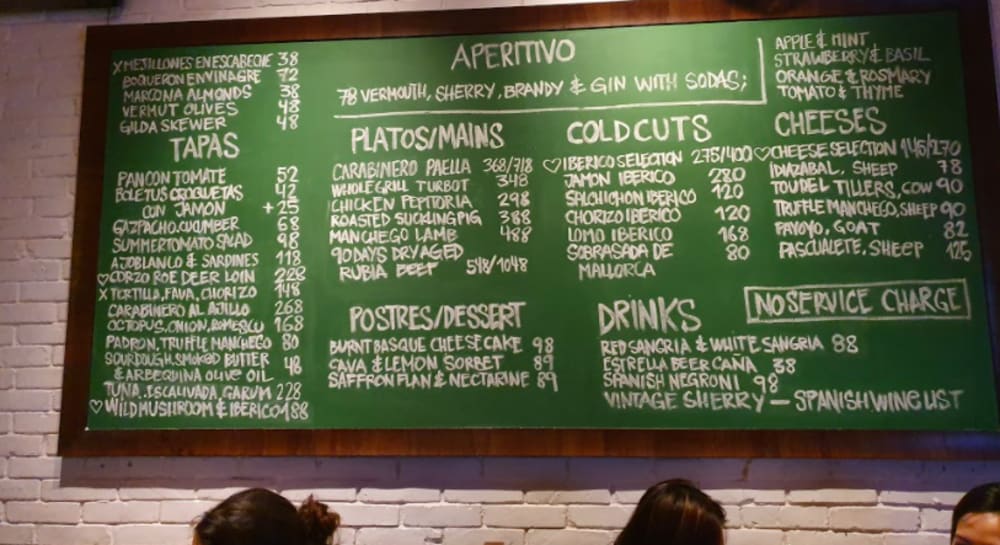 X MEJILLONES EN ESCABECHE 38
BOQUERON EN VINAGRE 72
MARCONA ALMONDS 38
VERMUT OLIVES 48
GILDA SKEWER 48
TAPAS
PAN CON TOMATE 52
BOLETUS CROQUETAS 42
CON JAMON +25
GAZPACHO.CUCUMBER 68
SUMMERTOMATO SALAD 98
AJOBLANCO & SARDINES 118
♡CORZO ROE DEER LOIN 228
X TORTILLA, FAVA, CHORIZO 148
CARABINERO AL AJILLO 268
OCTOPUS, ONION, ROMESCU 168
PADRON, TRUFFLE MANCHEGO 80
SOURDOUGH, SMOKED BUTTER
& ARBEQUINA OLIVE OIL 48
TUNA, ESCALIVADA, GARUM 228
♡ WILD MUSHROOM & IBERICO 188
APERITIVO
78 VERMOUTH, SHERRY, BRANDY & GIN WITH SODAS;
APPLE & MINT
STRAWBERRY & BASIL
ORANGE & ROSMARY
TOMATO & THYME
PLATOS/MAINS
CARABINERO PAELLA 368/718
WHOLE GRILL TURBOT 348
CHICKEN PEPITORIA 298
ROASTED SUCKLING PIG 388
MANCHEGO LAMB 488
90 DAYS DRY AGED
RUBIA BEEF 548/1048
POSTRES/DESSERT
BURNT BASQUE CHEESE CAKE 98
CAVA & LEMON SORBET 89
SAFFRON FLAN & NECTARINE 89
COLD CUTS
♡IBERICO SELECTION 275/400
JAMON IBERICO 280
SALCHICHON IBERICO 120
CHORIZO IBERICO 120
LOMO IBERICO 168
SOBRASADA DE 80
MALLORCA
CHEESES
♡CHEESE SELECTION 145/270
IDIAZABAL, SHEEP 78
TOU DEL TILLERS, COW 90
TRUFFLE MANCHEGO, SHEEP 90
PAYOYO, GOAT 82
PASCUALETE, SHEEP 125
NO SERVICE CHARGE
DRINKS
RED SANGRIA & WHITE SANGRIA 88
ESTRELLA BEER CAÑA 38
SPANISH NEGRONI 98
VINTAGE SHERRY – SPANISH WINE LIST